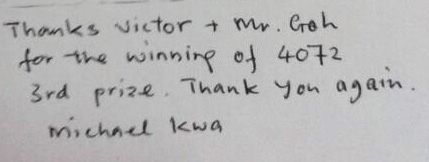 Thanks Victor + Mr. Goh
for the winning of 4072
3rd prize. Thank you again.
Michael Kwa